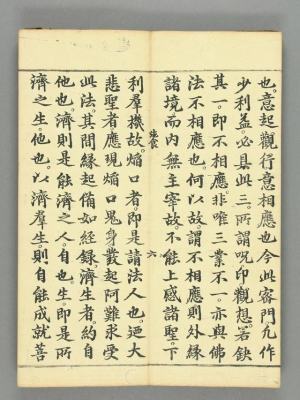 也。意起觀行意相應也今此密門凡作
少利益必具此三所謂呪印觀想若缺
其一即不相應。非唯三業不一。亦與佛
法不相應也。何以故謂不相應則外緣
諸境而內無主宰故。不能上感諸聖。下
施食 六
利羣機故。燄口者。即是請法人也。迺大
悲聖者應現燄口鬼身。叢起阿難求受
此法。其問緣起備如經錄濟生者。約自
他也。濟則是能濟之人。自也。生即是所
濟之生。他也。以濟羣生。則自能成就菩